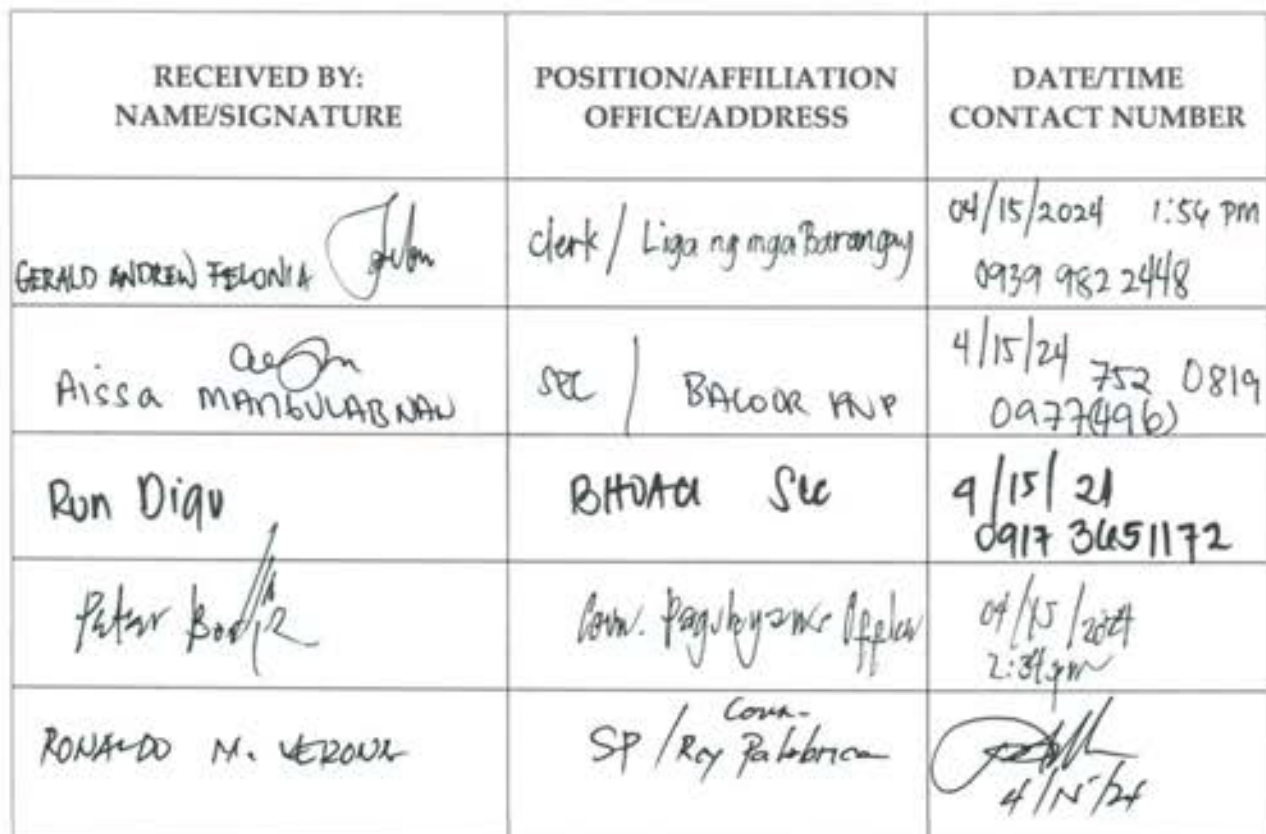 RECEIVED BY:
NAME/SIGNATURE
POSITION/AFFILIATION
OFFICE/ADDRESS
DATE/TIME
CONTACT NUMBER
GERALD ANDREW FELONIA
clerk / Liga ng mga Barangay
04/15/2024 1:54 pm
0939 982 2448
Aissa MANGULABNAN
SEC / BACOOR PNP
4/15/24
752 0819
0977(496)
Ron
Sec
4/15/24
0917 3651172
Peter
Coun.
04/15/2024
2:34 pm
RONALDO M. VERONA
Coun.
SP / Rey Palabrica
4/15/24